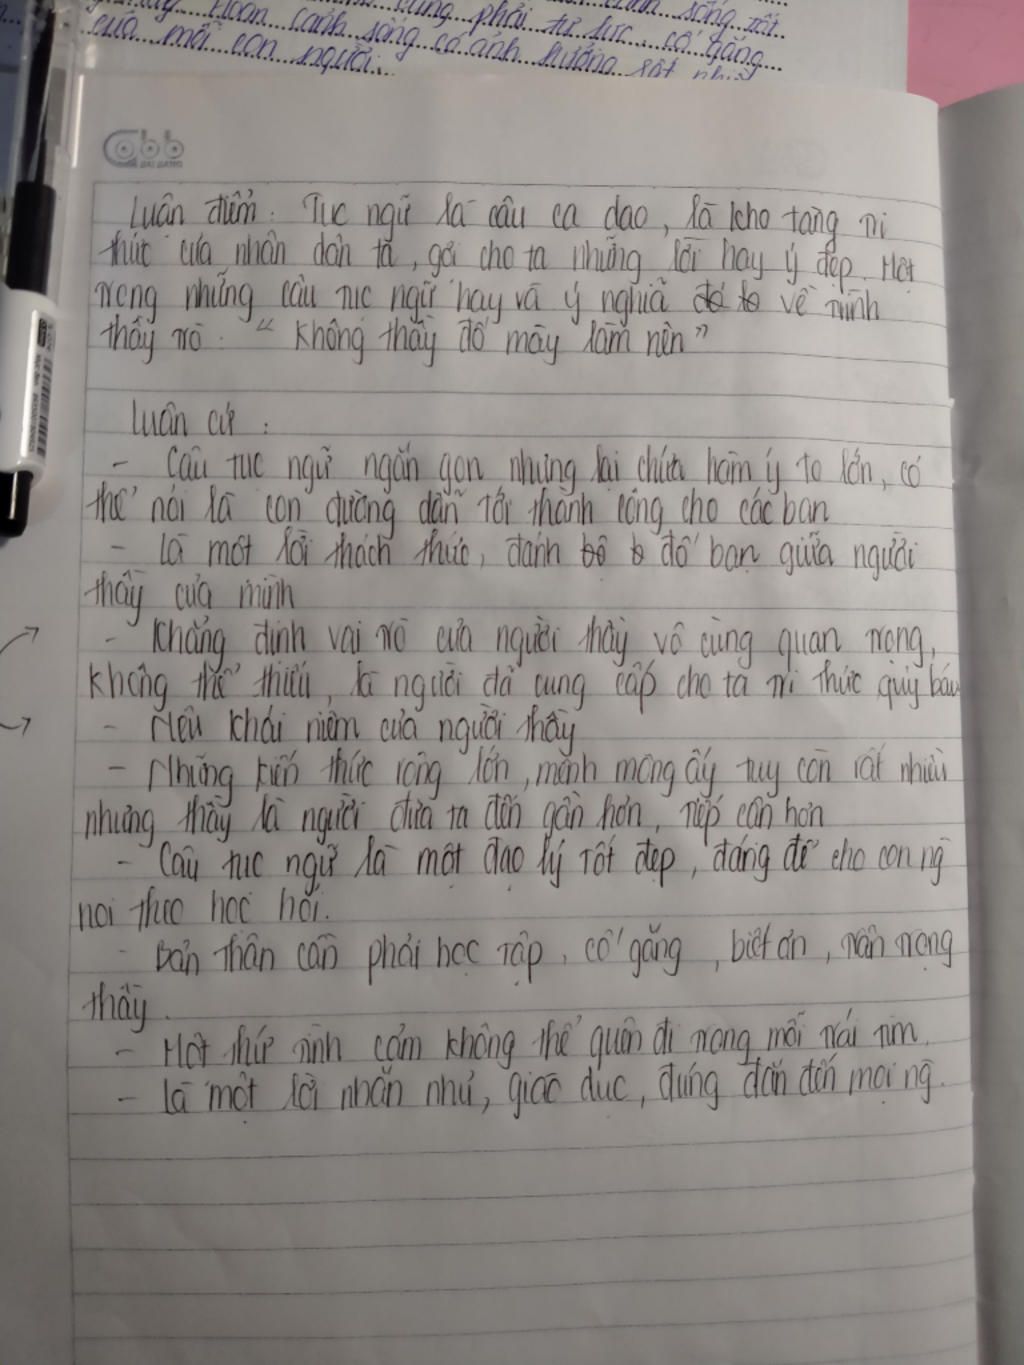 Hoàn cảnh sống cũng phải tự lực, cố gắng
của mỗi con người. sống có ảnh hưởng rất
Luận điểm: Tục ngữ là câu ca dao, là kho tàng tri
thức của nhân dân ta, gợi cho ta những lời hay ý đẹp. Một
trong những câu tục ngữ hay và ý nghĩa về tình
thầy trò: "Không thầy đố mày làm nên"
Luận cứ:
- Câu tục ngữ ngắn gọn nhưng lại chứa hàm ý to lớn, có
thể nói là con đường dẫn tới thành công cho các bạn
- Là một lời thách thức, đánh đố bạn giữa người
thầy của mình
- Khẳng định vai trò của người thầy vô cùng quan trọng,
không thể thiếu, là người đã cung cấp cho ta tri thức quý báu
- Nêu khái niệm của người thầy
- Những kiến thức rộng lớn, mênh mông ấy tuy còn rất nhiều
nhưng thầy là người đưa ta đến gần hơn, tiếp cận hơn
- Câu tục ngữ là một đạo lý tốt đẹp, đáng để cho con ng
noi theo học hỏi.
- Bản thân cần phải học tập, cố gắng, biết ơn, trân trọng
thầy.
- Một thứ tình cảm không thể quên đi trong mỗi trái tim.
- Là một lời nhắn nhủ, giáo dục, đúng đắn đến mọi ng.